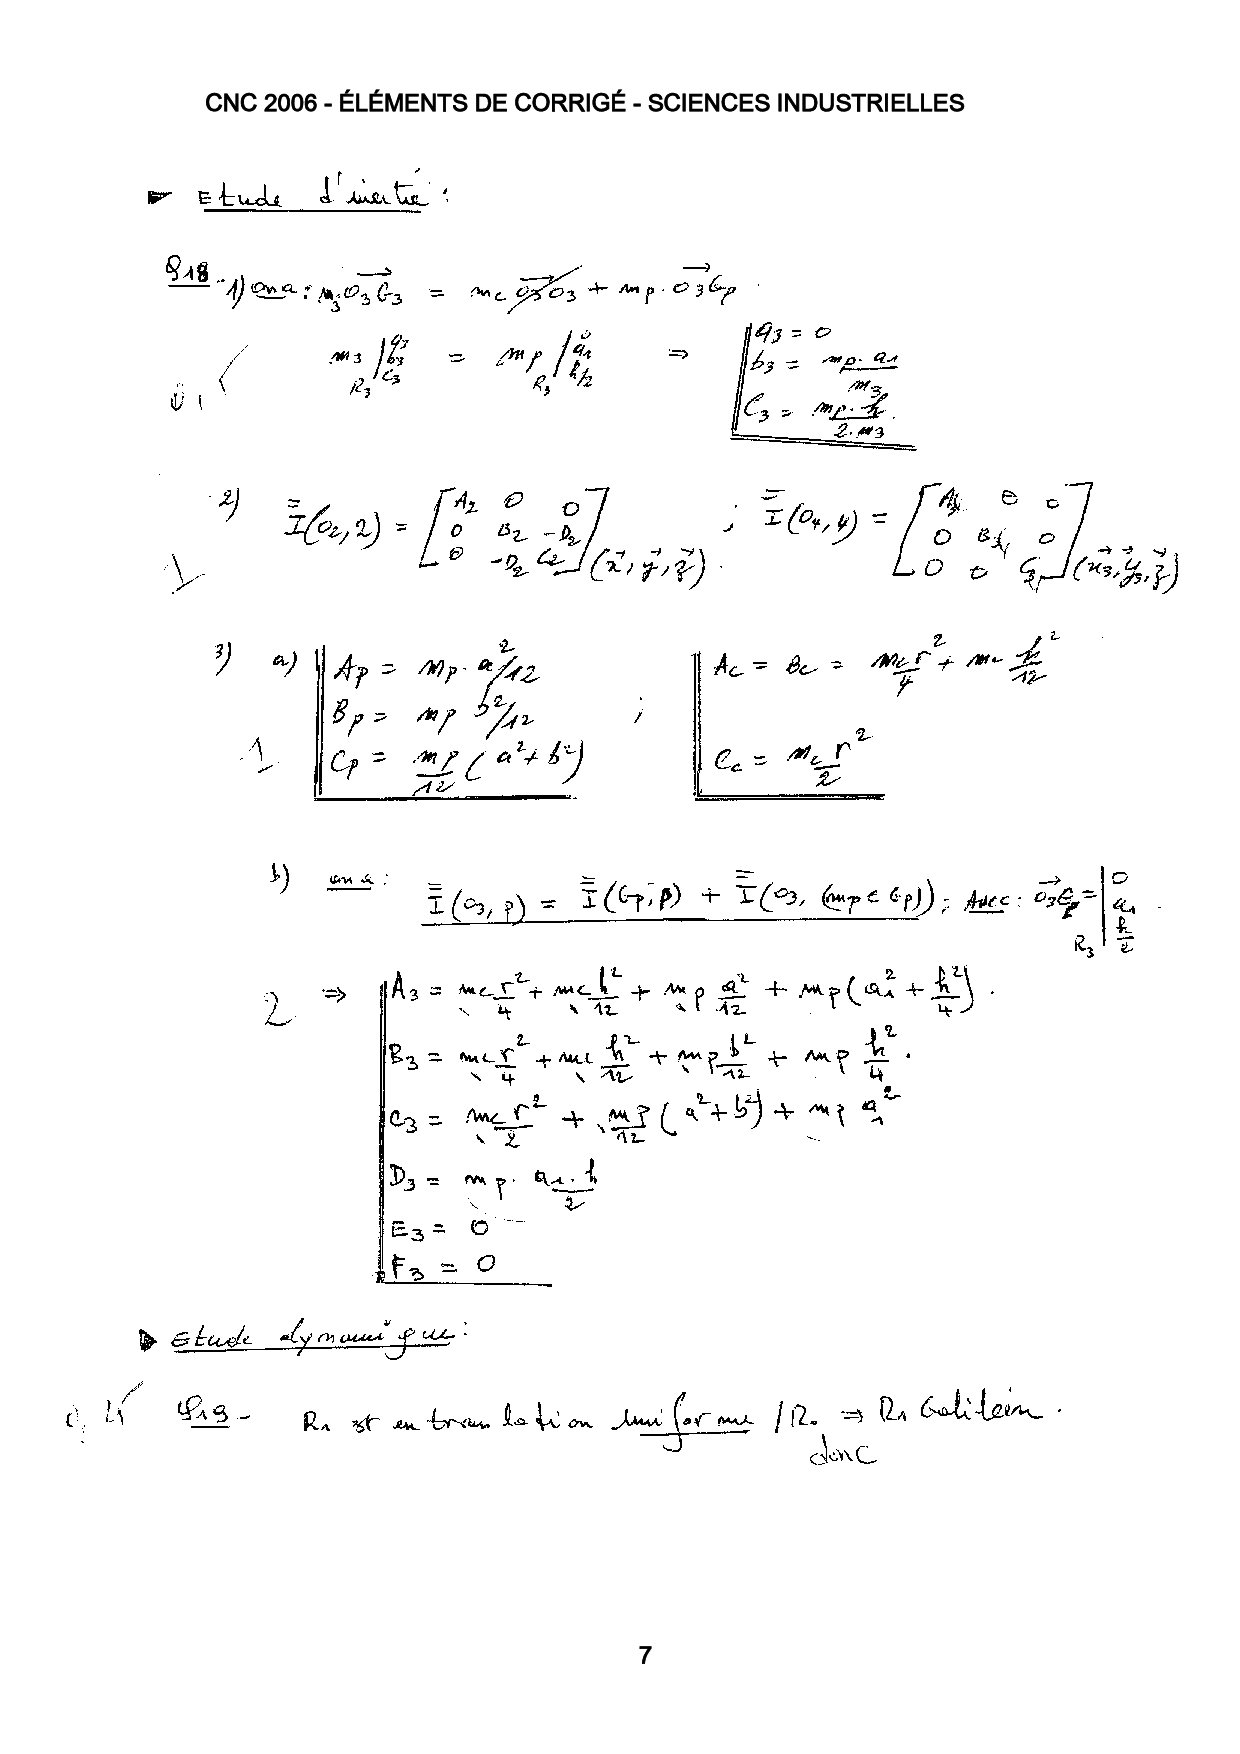 CNC 2006 - ÉLÉMENTS DE CORRIGÉ - SCIENCES INDUSTRIELLES
Etude d'inertie :
Q18 - 1) on a : m₃ O₃G₃ = mc O₃O₃ + mp . O₃Gp
m₃ | a₃ b₃ c₃ R₃ = mp | 0 a₁ h/2 R₃ ⇒ a₃ = 0
b₃ = mp . a₁ / m₃
C₃ = mp . h / 2 . m₃
2) I(O₂, 2) = [ A₂ 0 0 ; I(O₄, 4) = [ A₄ 0 0
0 B₂ -D₂ 0 B₄ 0
0 -D₂ C₂ ] (x, y, z) . 0 0 C₄ ] (x₃, y₃, z)
1
3) a) Ap = mp . a²/12 Ac = Bc = mc r²/4 + mc h²/12
Bp = mp b²/12 ;
1 Cp = mp/12 ( a² + b² ) Cc = mc r²/2
b) on a : I(O₃, p) = I(Gp, p) + I(O₃, (mp ∈ Gp)) ; Avec : O₃Gp = | 0 a₁ h/2 R₃
2 ⇒ A₃ = mc r²/4 + mc h²/12 + mp a²/12 + mp ( a₁² + h²/4 ) .
B₃ = mc r²/4 + mc h²/12 + mp b²/12 + mp h²/4 .
C₃ = mc r²/2 + mp/12 ( a² + b² ) + mp a₁²
D₃ = mp . a₁ . h / 2
E₃ = 0
F₃ = 0
Etude dynamique :
Q19 - R₁ est en translation uniforme / R₀ ⇒ R₁ Galiléen .
donc
7